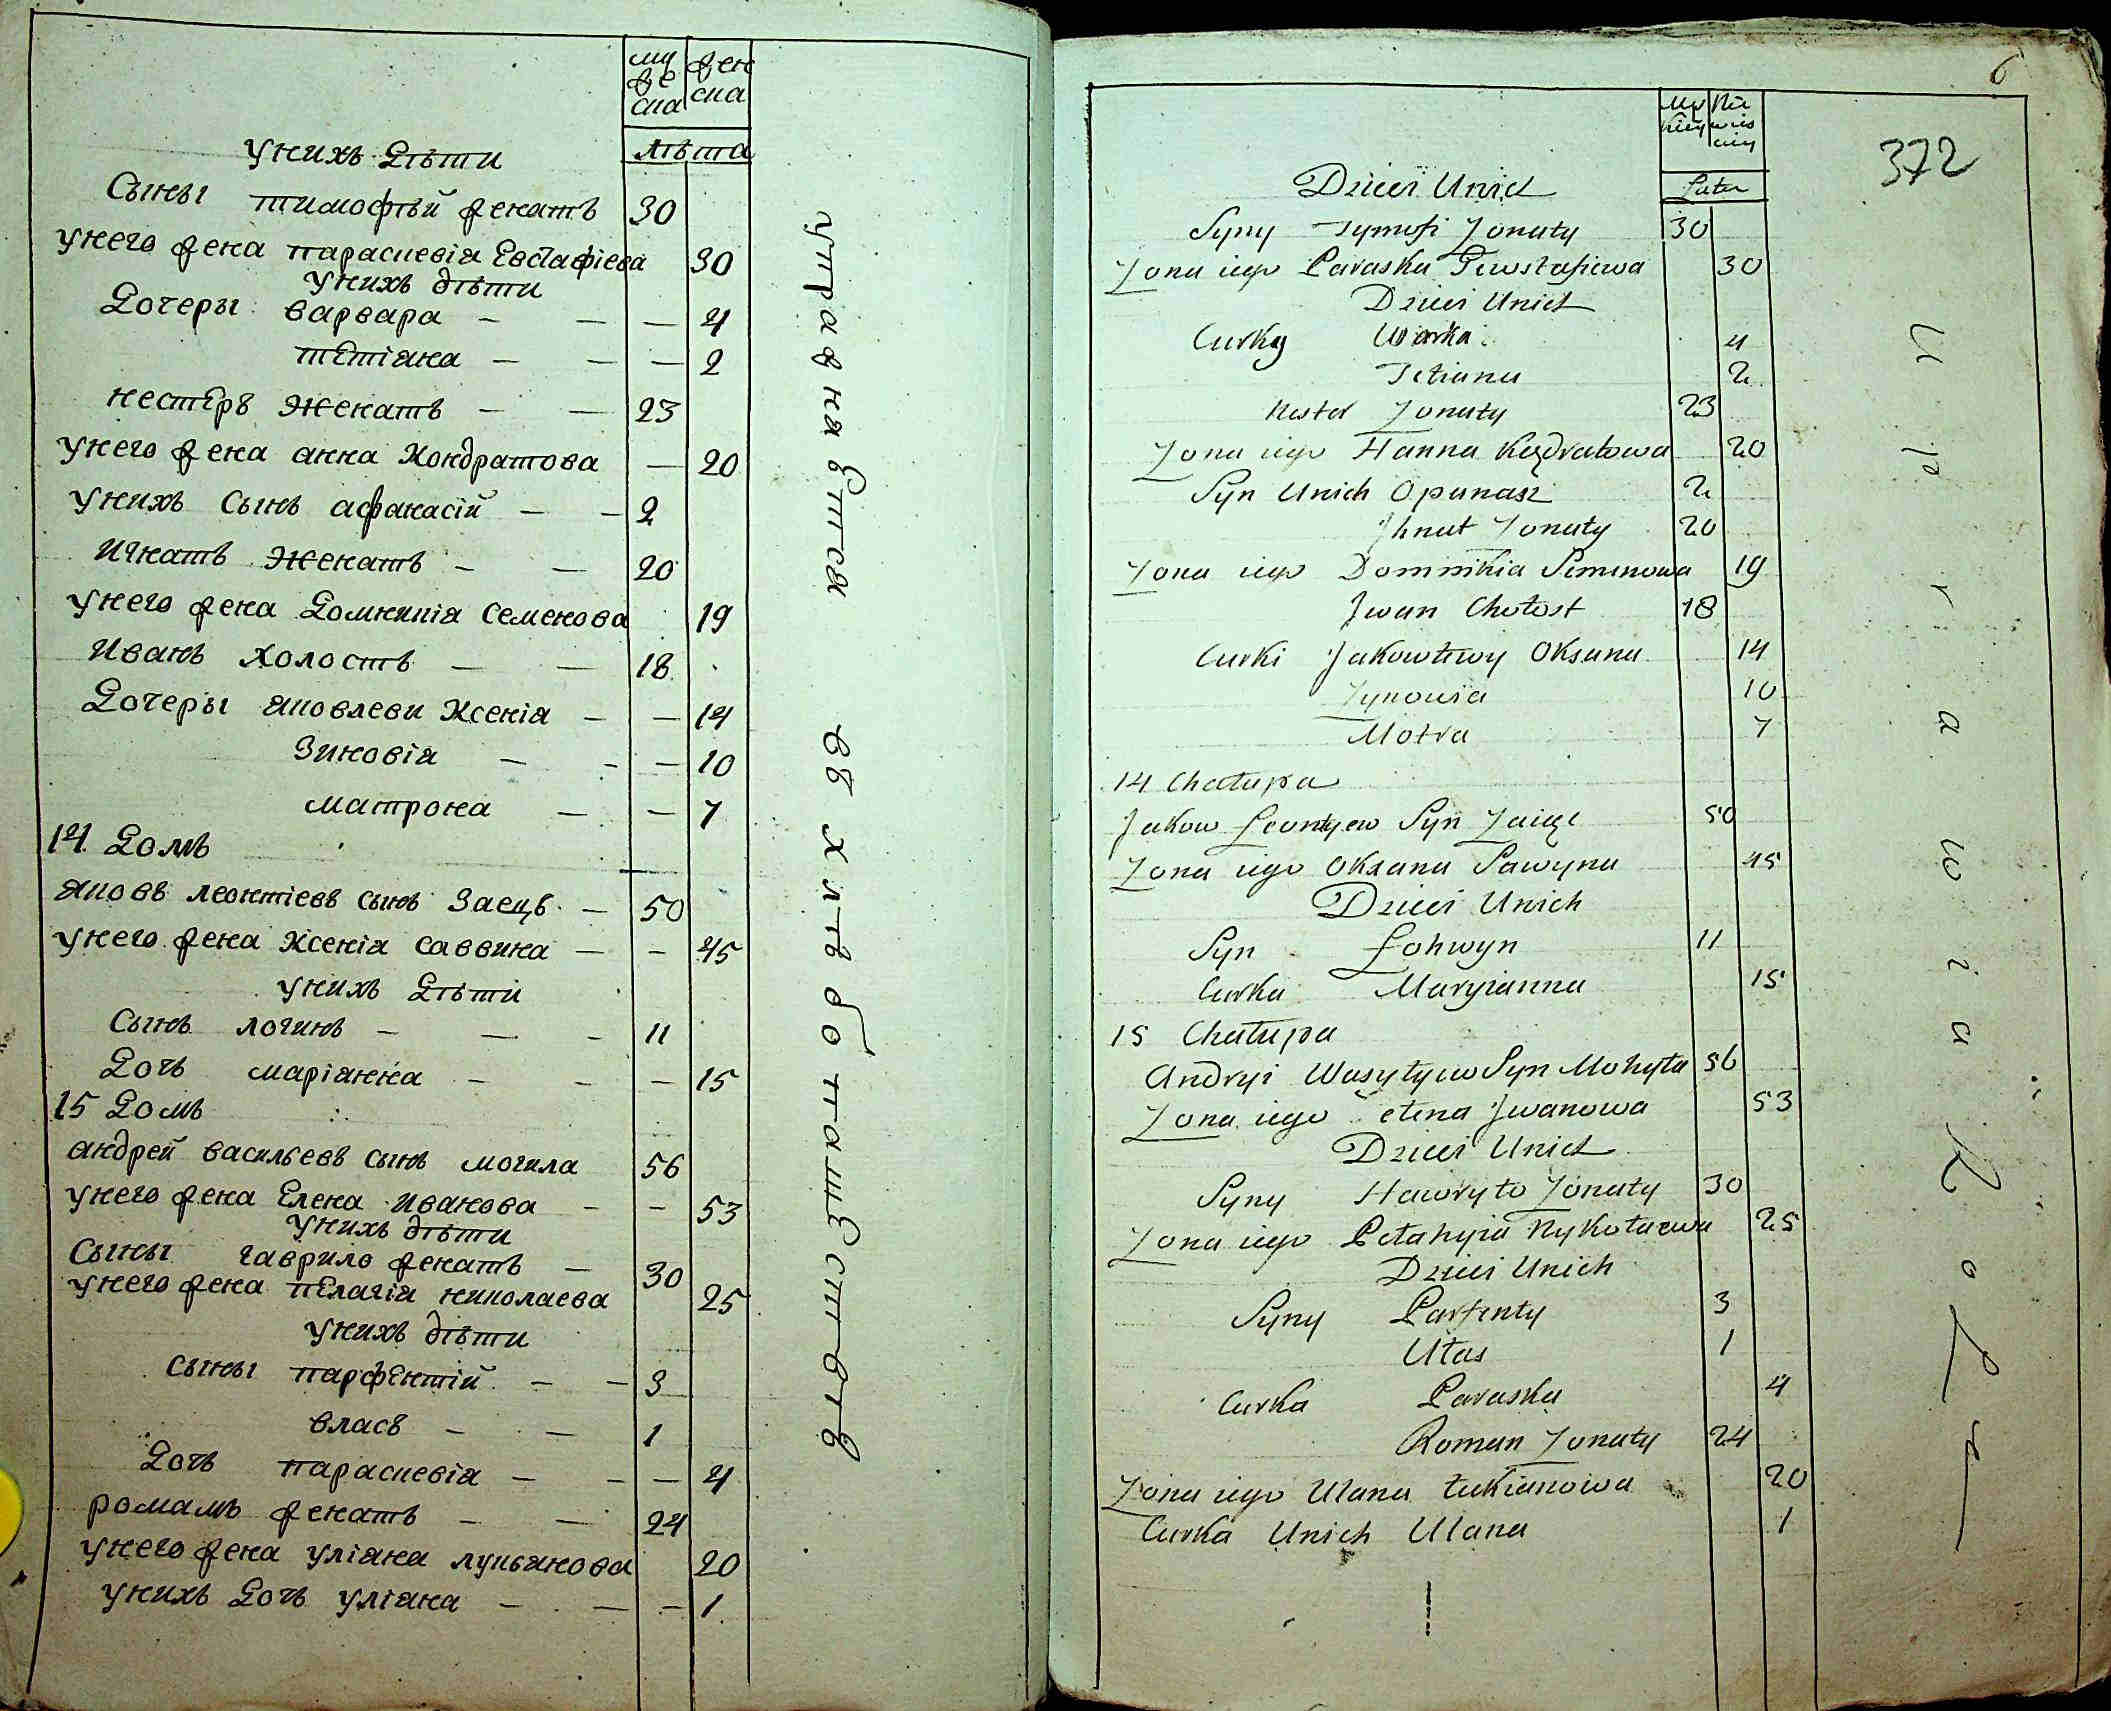 му
же
ска
жен
ска
лѣта
Унихъ Дѣти
Сыны тимофѣй женатъ 30
унего жена парасковія Евстафіева 30
Унихъ дѣти
Дочеры варвара — — — 4
тетіана — — — 2
нестеръ женатъ — — 23
унего жена анна Кондратова — 20
унихъ Сынъ афанасій — — 2
игнатъ женатъ — — 20
унего жена Домникія Семенова 19
Иванъ холостъ — — 18
Дочеры яковлевы Ксенія — — 14
Зиновія — - — 10
матрона — — 7
14 Домъ
яковъ леонтіевъ сынъ Заецъ — 50
унего жена Ксенія саввина — — 45
унихъ Дѣти
Сынъ логинъ — — - 11
Дочь маріанна - - — 15
15 Домъ
андрей васильевъ сынъ могила 56
унего жена Елена Иванова - - 53
Унихъ дѣти
Сыны гаврило женатъ — 30
унего жена пелагія николаева 25
унихъ дѣти
сыны парфентій — — 3
власъ — — 1
Дочь парасковія — - — 4
романъ женатъ — — 24
унего жена уліана лукьянова 20
унихъ Дочь уліана — — — 1
управняется въ хлѣбопашествѣ
6
372
Lata
Dzieci Unich
Syny Tymofi Zonaty 30
Zona iego Paraska Jewstafiewa 30
Dzieci Unich
Curky Warka 4
Tetiana 2
Nester Zonaty 23
Zona iego Hanna Kądratowa 20
Syn Unich Opanasz 2
Ihnat Zonaty 20
Zona iego Domnikia Semenowa 19
Jwan Chołost 18
Curki Jakowliwy Oksana 14
Zynowia 10
Motra 7
14 Chałupa
Jakow Leontyew Syn Zaiąc 50
Zona iego Oksana Sawyna 45
Dzieci Unich
Syn Lohwyn 11
Curka Maryianna 15
15 Chałupa
Andryi Wasylyiw Syn Mohyła 56
Zona iego Jelena Jwanowa 53
Dzieci Unich
Syny Hawryło Zonaty 30
Zona iego Pełahyia Nykołaewa 25
Dzieci Unich
Syny Parfenty 3
Ułas 1
Curka Paraska 4
Roman Zonaty 24
Zona iego Ulana Łukianowa 20
Curka Unich Ulana 1
Uprawia Rolą